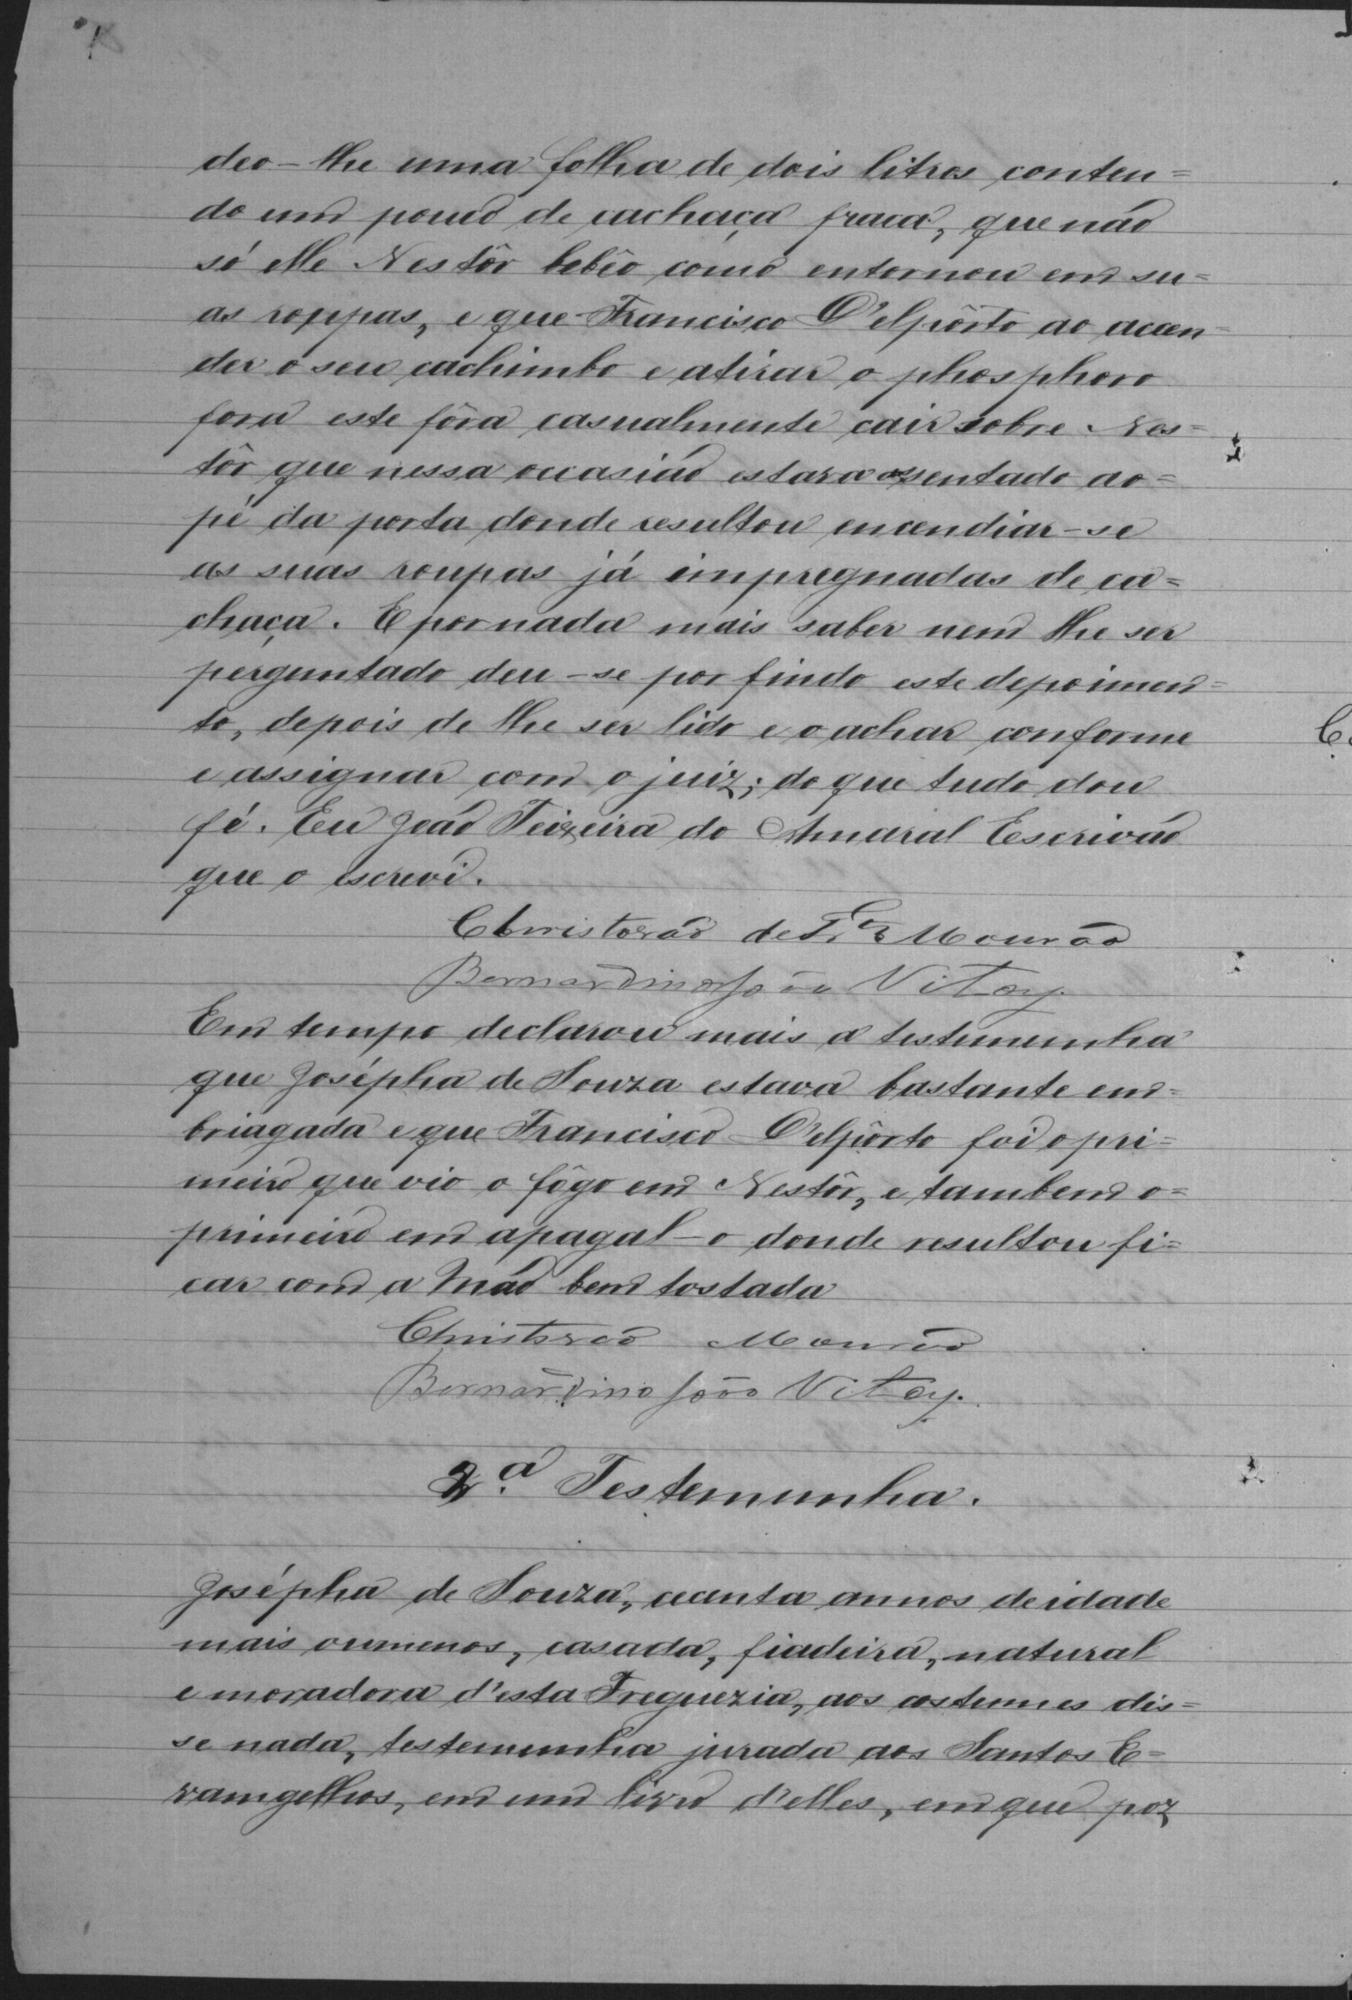 deo-lhe uma folha de dois litros conten=
do um pouco de cachaça fraca, que não
só elle Nestôr bebêo como entornou em su=
as roppas, e que Francisco D'elpôrto ao accen=
der o seu cachimbo e atirar o phosphoro
fora este fôra casualmente cair sobre Nes=
tôr que nessa occasião estava assentado ao=
pé da porta donde resultou encendiar-se
as suas roupas já impregnadas de ca=
chaça. E por nada mais saber nem lhe ser
perguntado deu-se por findo este depoimen=
to, depois de lhe ser lido e o achar conforme
e assignar com o juiz; do que tudo dou
fé. Eu João Teixeira do Amaral Escrivão
que o escrevi.
Christovão de Mourão
Bernardino João Vitoy.
Em tempo declarou mais a testemunha
que Josépha de Souza estava bastante em=
briagada e que Francisco D'elpôrto foi o pri=
meiro que vio o fôgo em Nestôr, e tambem o=
primeiro em apagal-o donde resultou fi=
car com a mão bem tostada
Christovão Mourão
Bernardino João Vitoy.
2.ª Testemunha.
Josépha de Souza, annos de idade
mais ou menos, casada, fiadeira, natural
e moradora d'esta Freguezia, aos costumes dis=
se nada, testemunha jurada aos Santos E=
vamgelhos, em um livro d'elles, em que poz